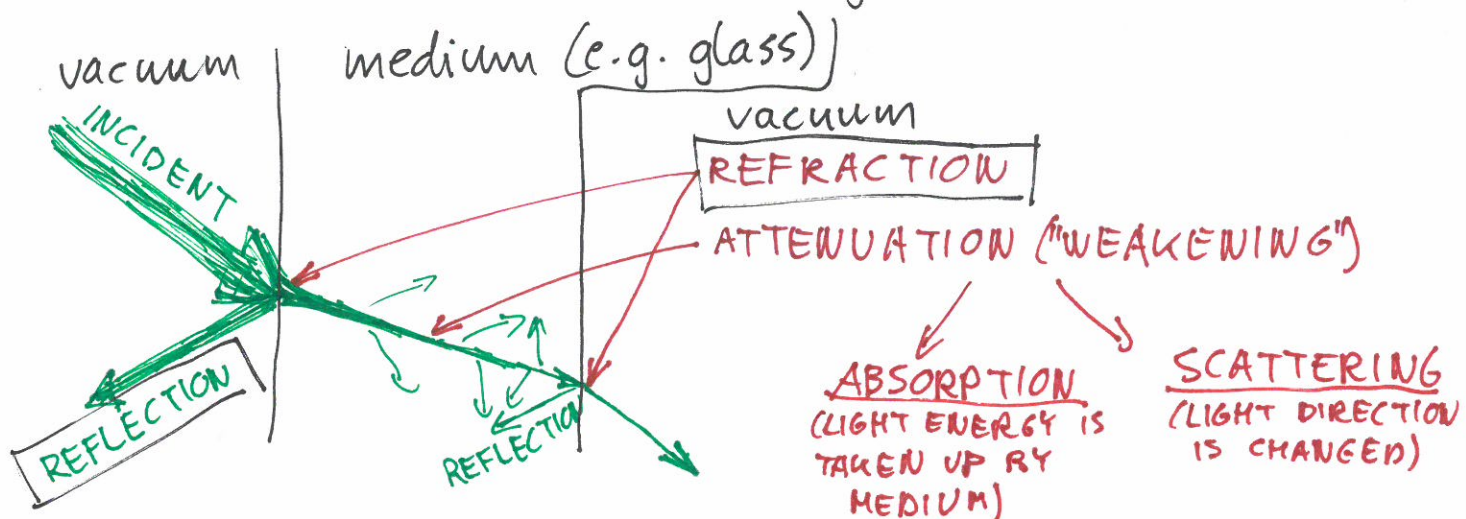 vacuum
medium (e.g. glass)
vacuum
INCIDENT
REFRACTION
ATTENUATION ("WEAKENING")
REFLECTION
REFLECTION
ABSORPTION
(LIGHT ENERGY IS
TAKEN UP BY
MEDIUM)
SCATTERING
(LIGHT DIRECTION
IS CHANGED)